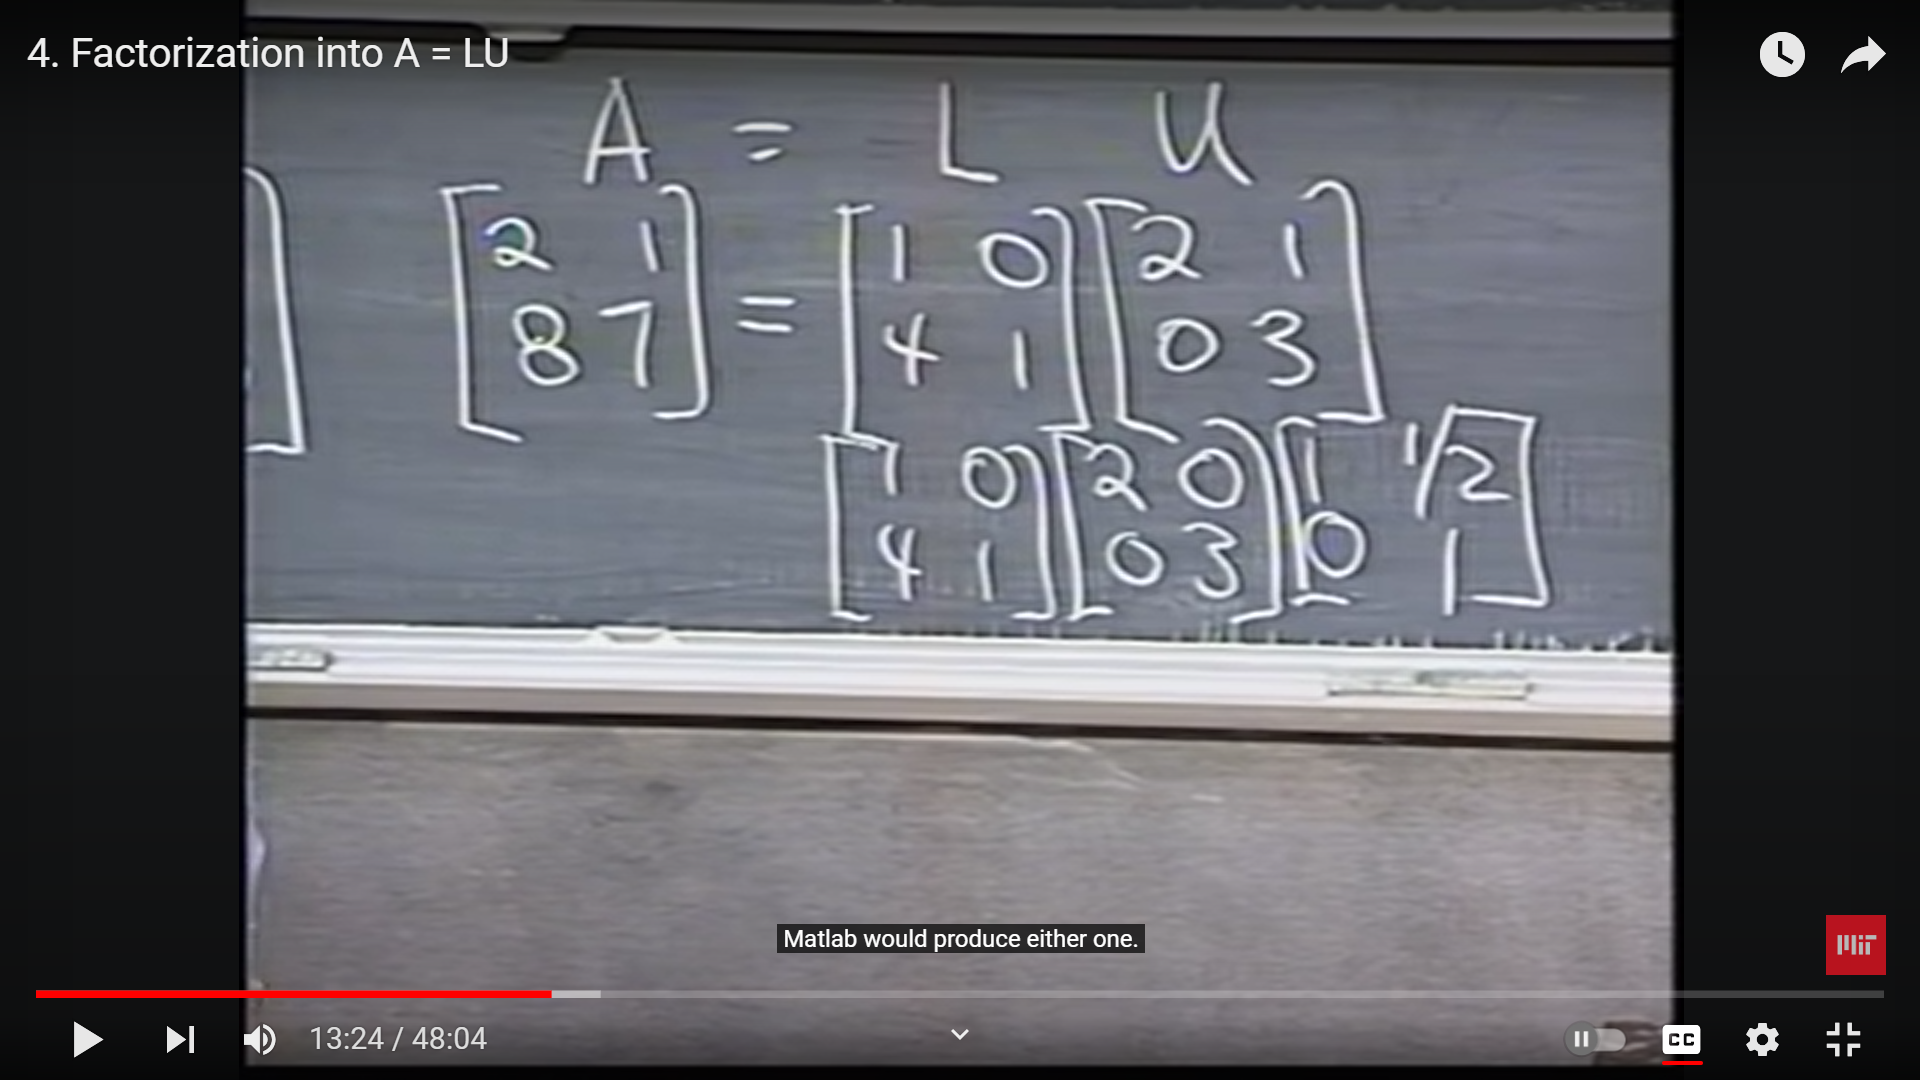 4. Factorization into A = LU
A = L U
[2 1 = [1 0 [2 1
8 7] 4 1] 0 3]
[1 0 [2 0 [1 1/2
4 1] 0 3] 0 1]
Matlab would produce either one.
MIT
13:24 / 48:04
CC